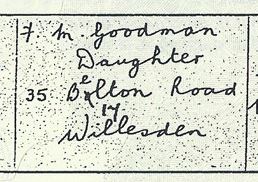 7 M Goodman
Daughter
35 Belton Road
17
Willesden